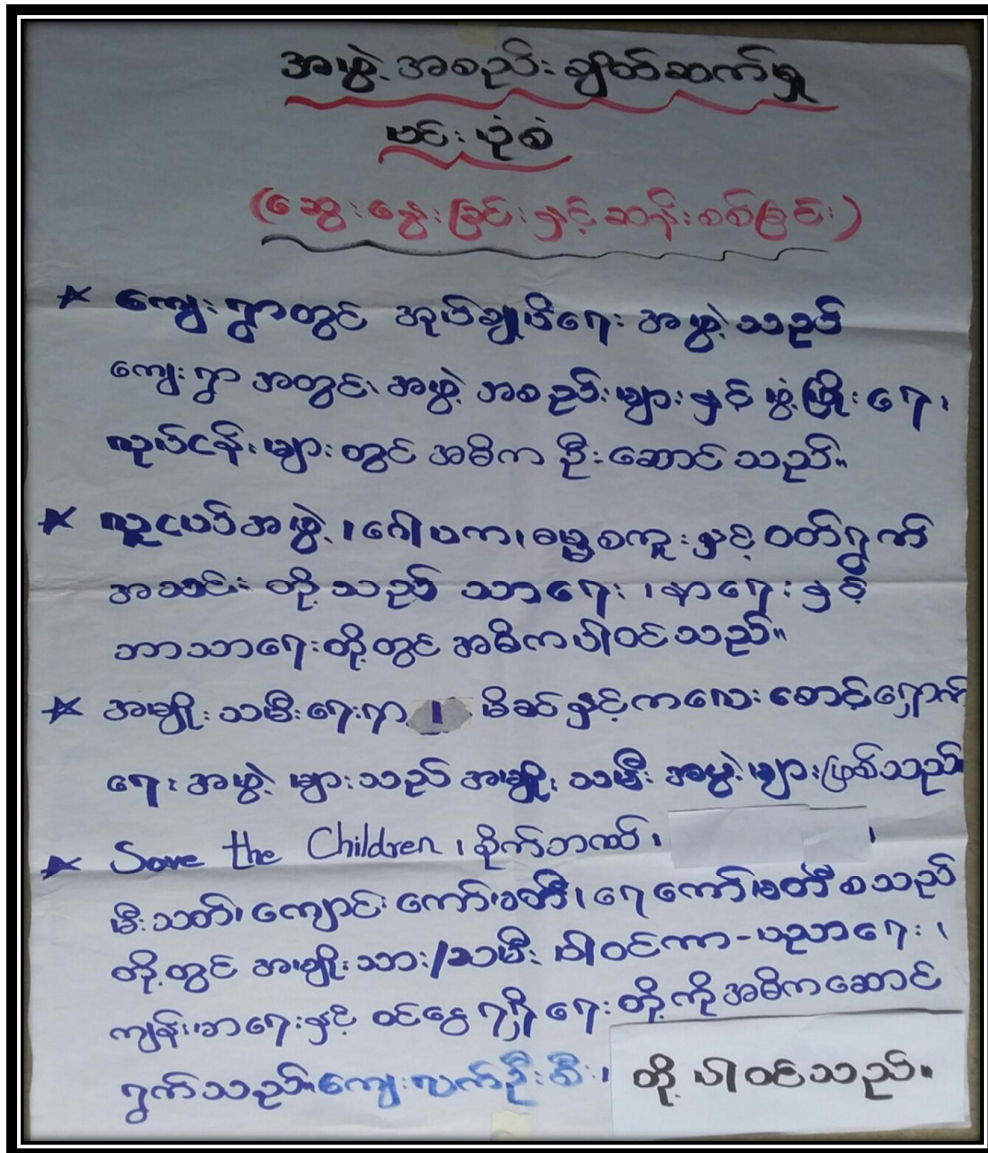 အဖွဲ့အစည်းချိတ်ဆက်မှု
ပင်းပုံစံ
(ဆွေးနွေးခြင်းနှင့်ဆန်းစစ်ခြင်း)
★ ကျေးရွာတွင် အုပ်ချုပ်ရေးအဖွဲ့သည်
ကျေးရွာအတွင်း အဖွဲ့အစည်းများနှင့် ဖွံ့ဖြိုးရေး
လုပ်ငန်းများတွင် အဓိကဦးဆောင်သည်။
★ လူငယ်အဖွဲ့၊ ဂေါပက၊ ဓမ္မစကူးနှင့် ဝတ်ရွတ်
အသင်းတို့သည် သာရေး၊ နာရေးနှင့်
ဘာသာရေးတို့တွင် အဓိကပါဝင်သည်။
★ အမျိုးသမီးရေးရာ၊ မိခင်နှင့်ကလေးစောင့်ရှောက်
ရေးအဖွဲ့များသည် အမျိုးသမီးအဖွဲ့များဖြစ်သည်
★ Save the Children ၊ နိုက်ဘဏ်၊ ၊
မီးသတ်၊ ကျောင်းကော်မတီ၊ ရေကော်မတီ စသည်
တို့တွင် အမျိုးသား/သမီး ပါဝင်ကာ-ပညာရေး၊
ကျန်းမာရေးနှင့် ဝင်ငွေရရှိရေးတို့ကိုအဓိကဆောင်
ရွက်သည်။ကျေးလက်ဦးစီး၊ တို့ပါဝင်သည်။